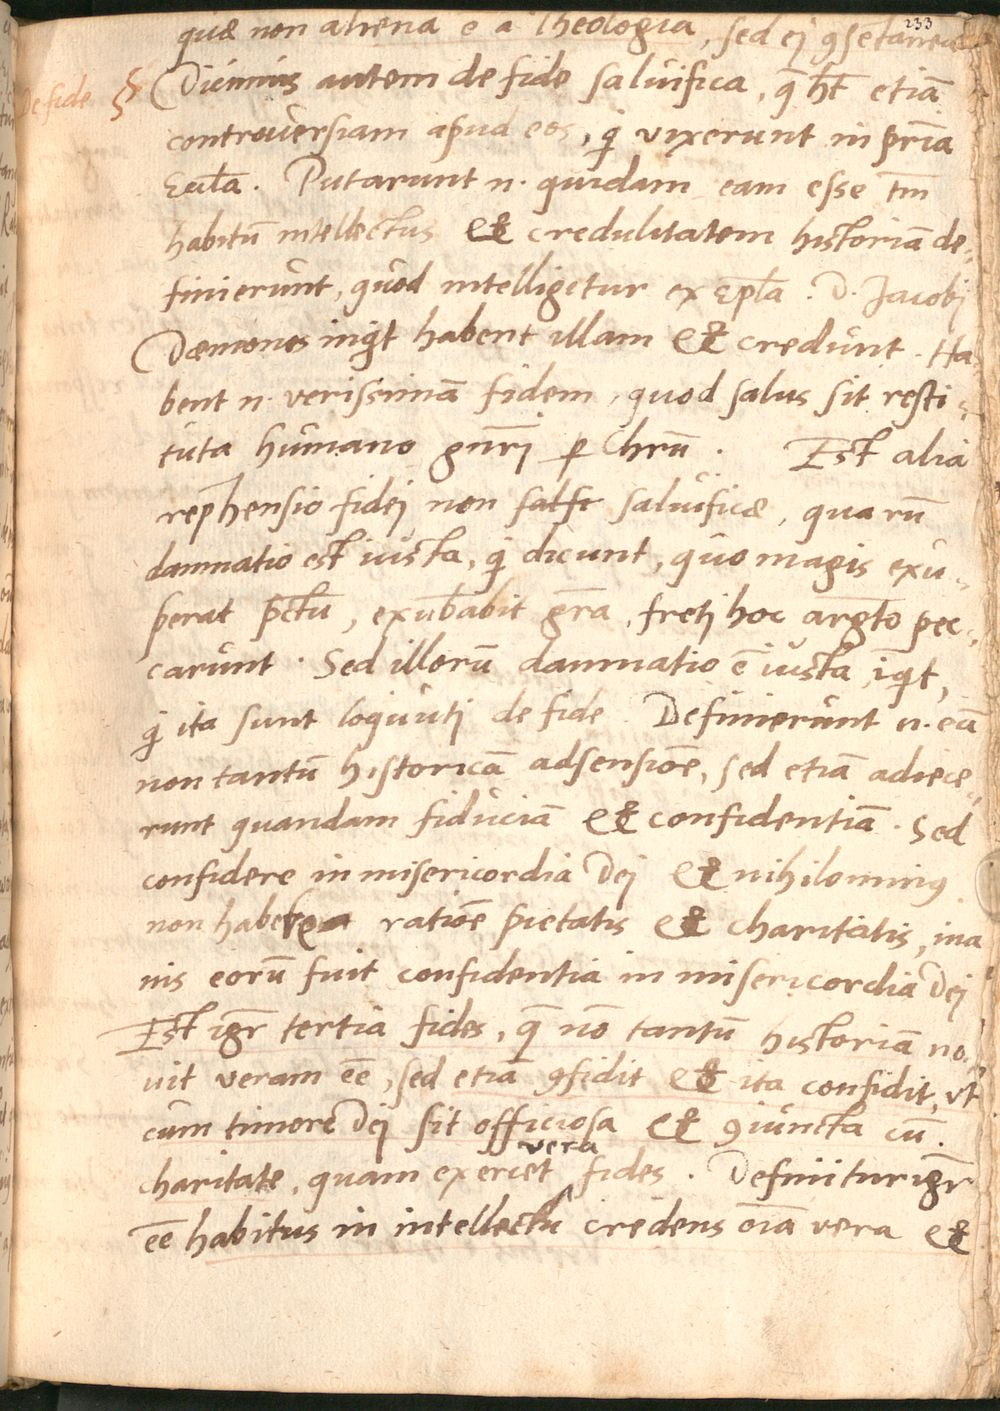 233
quæ non aliena ē a Theologia, sed ej ꝯsetanea
De fide § Dicimus autem de fide saluifica, q̄ h̄t etiā
controuersiam apud eos, q̇ vixerunt in pr̄ia
Eccl̄a. Putarunt n. quidam eam esse tm̄
habitū intellectus & credulitatem historiā de-
finierunt, quod intelligitur ex Ep̄la. D. Jacobj
Dæmones inq̇t habent illam & credunt. Ha-
bent n. verissimā fidem, quod salus sit resti-
tuta humano gn̄rj ꝑ Chrū. Est alia
rep̄hensio fidej non saluificæ, quarū
damnatio est iusta, q̇ dicunt, quo magis exu-
perat p̄ctū, exub̄abit gr̄a, fretj hoc arḡto pec-
carunt. Sed illorū damnatio ē iusta, īq̇t,
q̇ ita sunt loquutj de fide. Definierunt n. eā
non tantū historicā adsensionē, sed etiā adiece-
runt quandam fiduciā & confidentiā. Sed
confidere in misericordia Dej & nihilominꝯ
non habere rationē pietatis & charitatis, ina
nis eorū fuit confidentia in misericordia Dej
Est igr̄ tertia fides, q̄ nō tantū historiā no-
uit veram eē, sed etiā ꝯfidit & ita confidit, vt
cum timore Dej sit officiosa & ꝯiuncta cū.
charitate, quam exercet vera fides. Definitur igr̄
eē habitus in intellectu credens oīa vera &